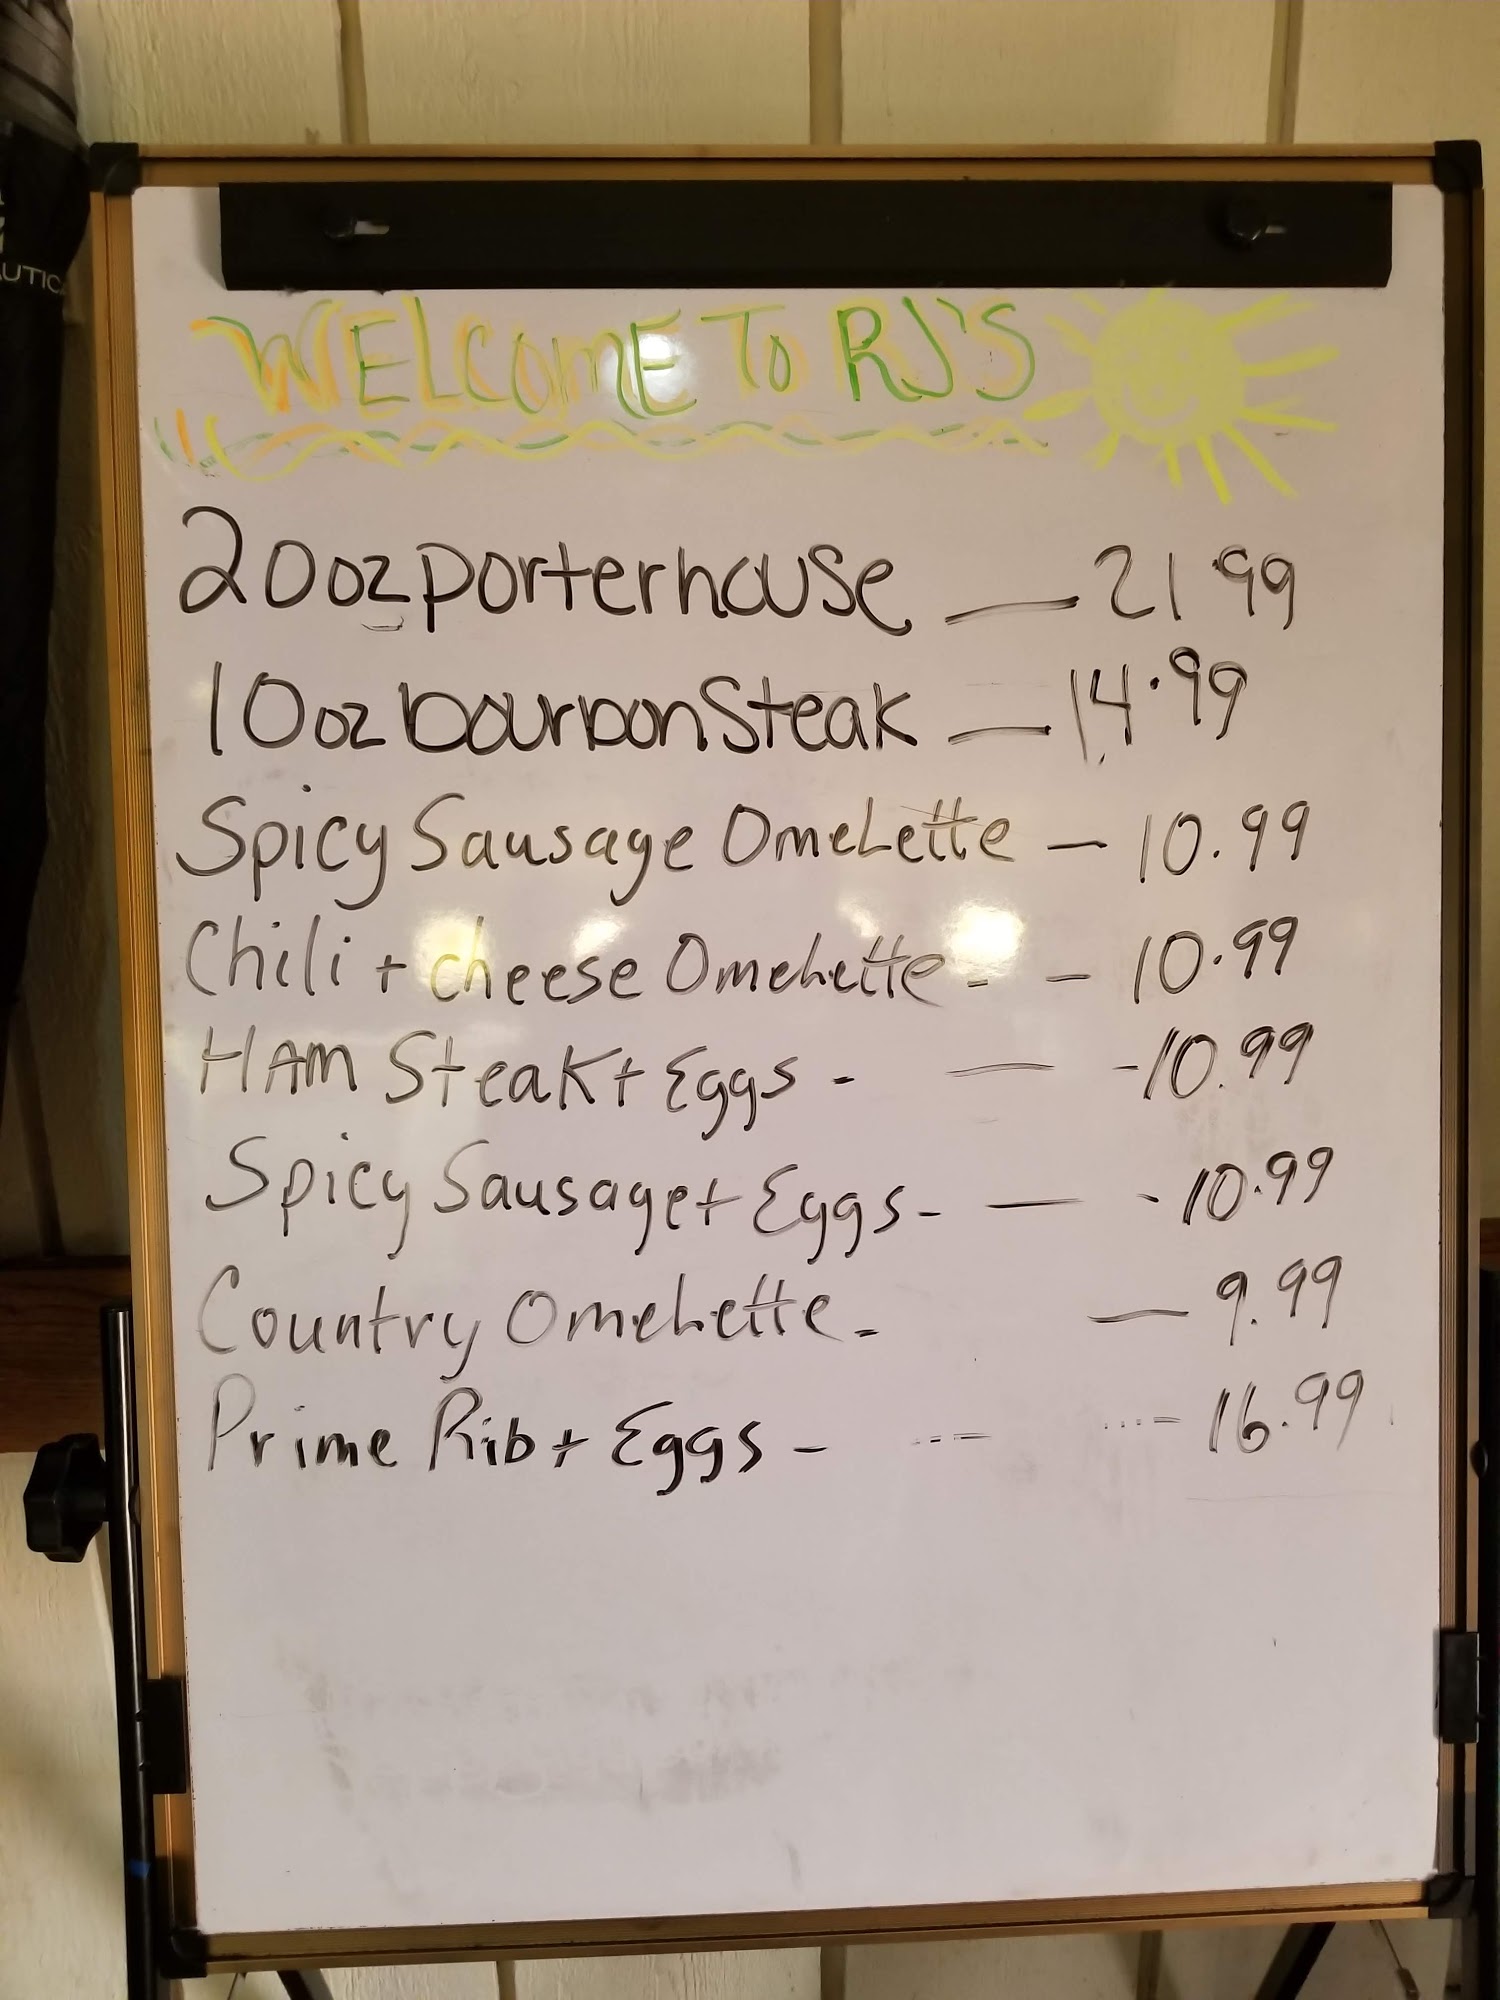 AUTIC
WELCOME TO RJ'S
20oz porterhouse — 21.99
10oz bourbon Steak — 14.99
Spicy Sausage OmeLette — 10.99
Chili + cheese OmeLette - - 10.99
HAM Steak + Eggs - — - 10.99
Spicy Sausage + Eggs - — - 10.99
Country OmeLette - — 9.99
Prime Rib + Eggs - --- ...- 16.99